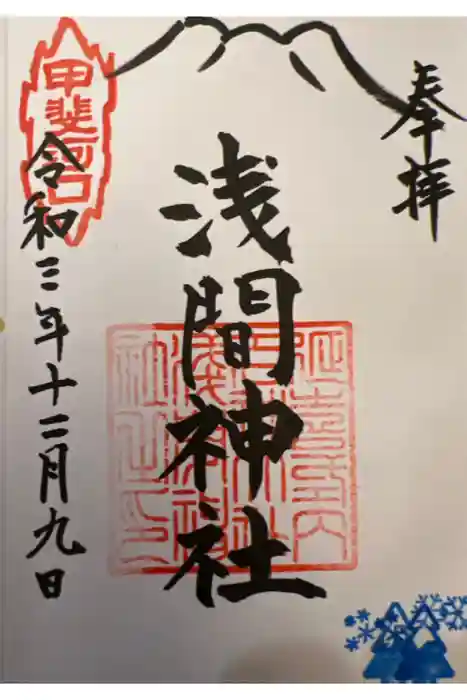 奉拝
浅間神社
甲斐河口
令和三年十二月九日